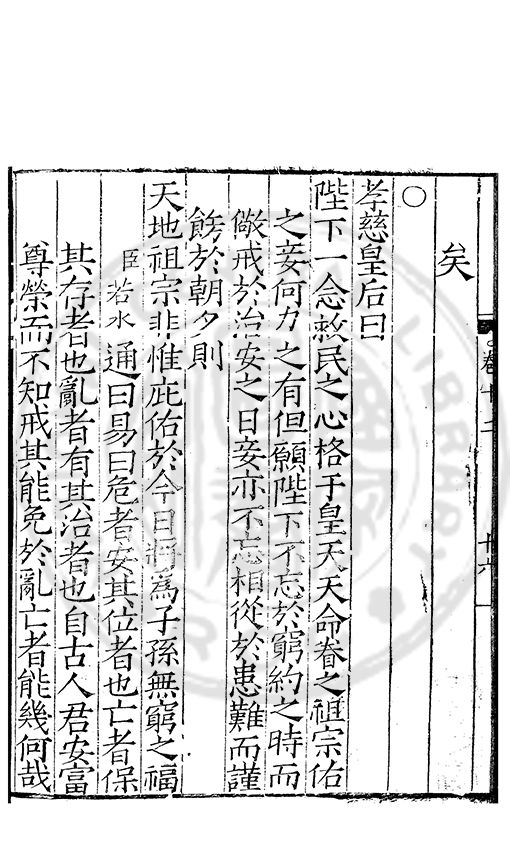 卷十二 十六
矣
○
孝慈皇后曰
陛下一念救民之心格于皇天天命眷之祖宗佑
之妾何力之有但願陛下不忘於窮約之時而
儆戒於治安之日妾亦不忘相從於患難而謹
飭於朝夕則
天地祖宗非惟庇佑於今日將為子孫無窮之福
臣若水通曰易曰危者安其位者也亡者保
其存者也亂者有其治者也自古人君安富
尊榮而不知戒其能免於亂亡者能幾何哉